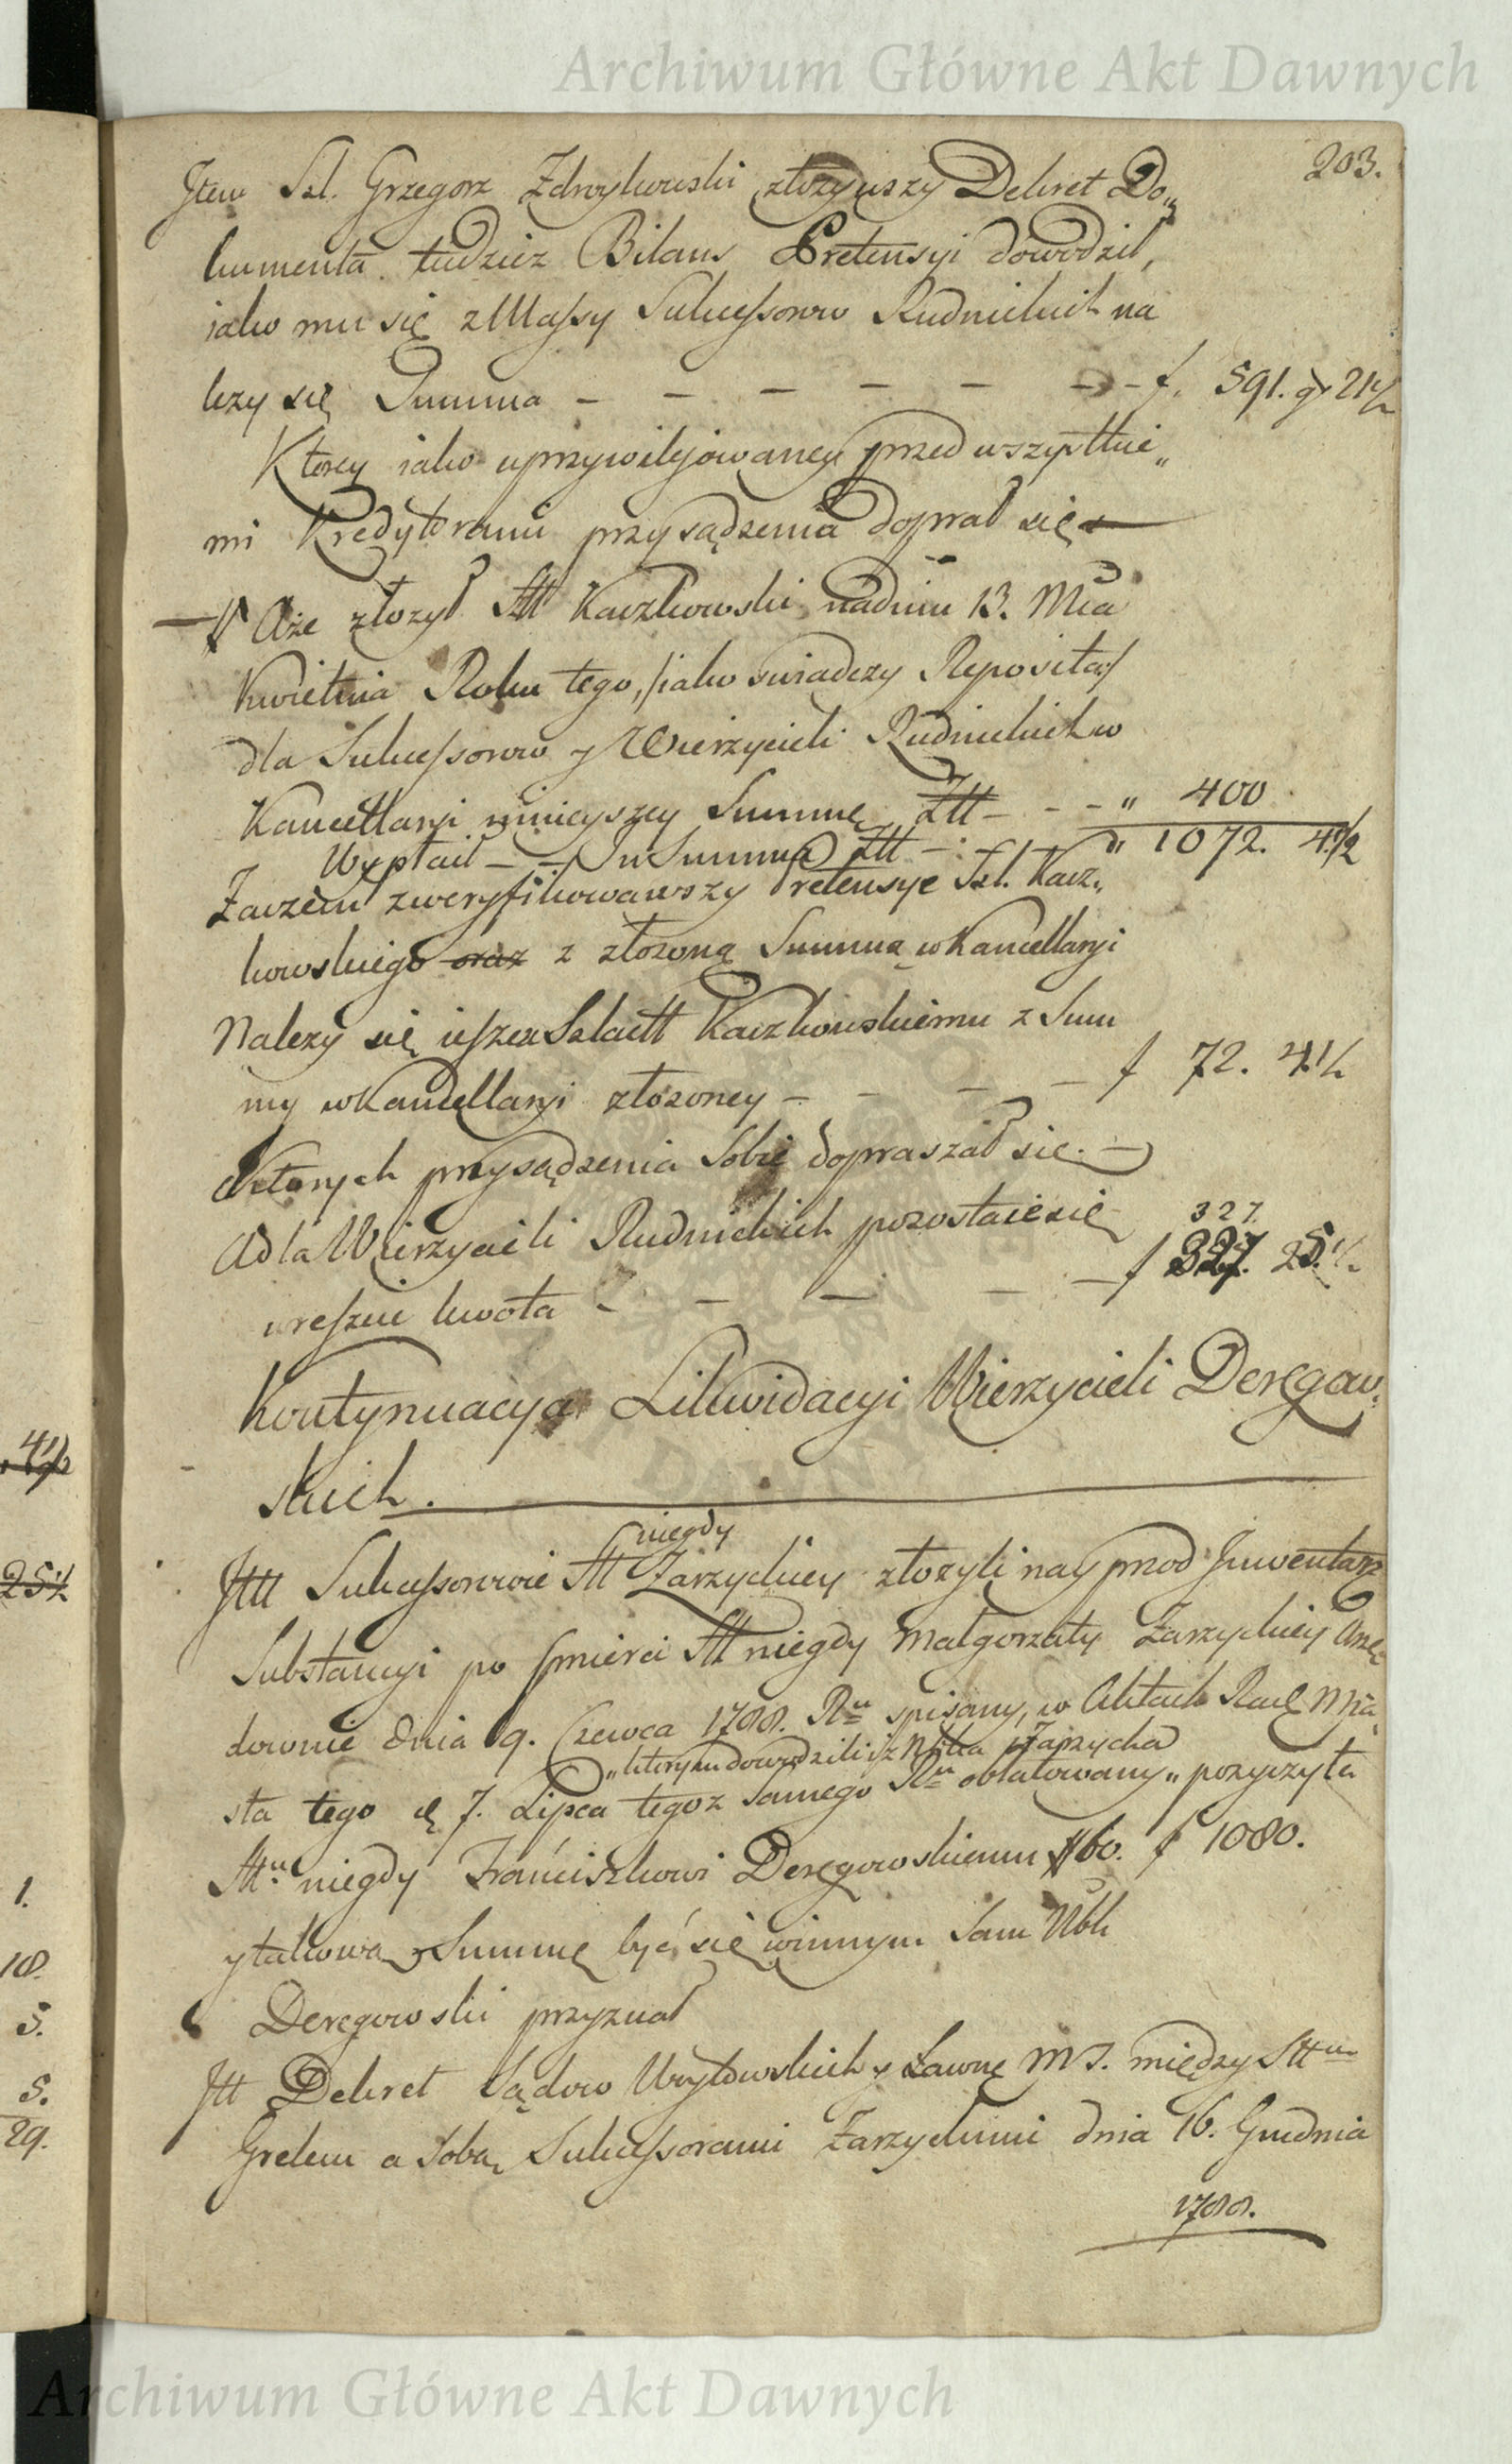 Archiwum Główne Akt Dawnych
203.
Jtem Szl. Grzegorz Zdroykowski złożywszy Dekret Do„
kumenta tudzież Bilans Pretensyi dowodził,
iako mu się z Massy Sukcessorow Rudnickich na
leży się Summa — — — — — — f. 591. gr 21½
Ktorey iako uprzywilejowaney przed wszystkie„
mi Kredytorami przysądzenia doprał się
Aże złożył Stt Kaczkowski nadniu 13. Mca
Kwietnia Roku tego, /iako swiadczy Reposita/
dla Sukcessorow y Wierzycieli Rudnickich w
Kancellaryi ninieyszey Summę Ztt — - - „ 400
Wypłacił — — Jn Summa Ztt — : — „ 1072. 4½
Zaczem zweryfikowawszy Pretensye Szl. Kacz„
kowskiego oraz z złożoną Summą w Kancellaryi
Należy się ieszcze Szlachtt Kaczkowskiemu z Sum
my w Kancellaryi złożoney — - — — f 72. 4½
Ktorych przysądzenia Sobie dopraszał się. —
A dla Wierzycieli Rudnickich pozostaie się
327.
wreszcie kwota — — — — — f 327. 25½
Kontynuacya Likwidacyi Wierzycieli Deręgow„
skich.
niegdy
Jttt Sukcessorowie Stt Zarzyckiey złożyli nayprzod Jnwentarz
Substancyi po smierci Stt niegdy Małgorzaty Zarzyckiey Urzę
downie dnia 9. Czerwca 1788. Ru spisany, w Aktach Radź Mia
„ktorym dowodzili iż Nttka Zarzycka
sta tego d 7. Lipca tegoż Samego Ru oblatowany „ pożyczyła
Sttu niegdy Franciszkowi Deręgowskiemu # 60. f 1080.
y takową Summę być się winnym Sam
Deręgowski przyznał
Jtt Dekret Sądow Woytowskich y Ławnę MS. między Sttu
Grelem a Sobą Sukcessorami Zarzyckiemi dnia 16. Grudnia
1788.
4½
25½
1.
18.
5.
5.
29.
Archiwum Główne Akt Dawnych